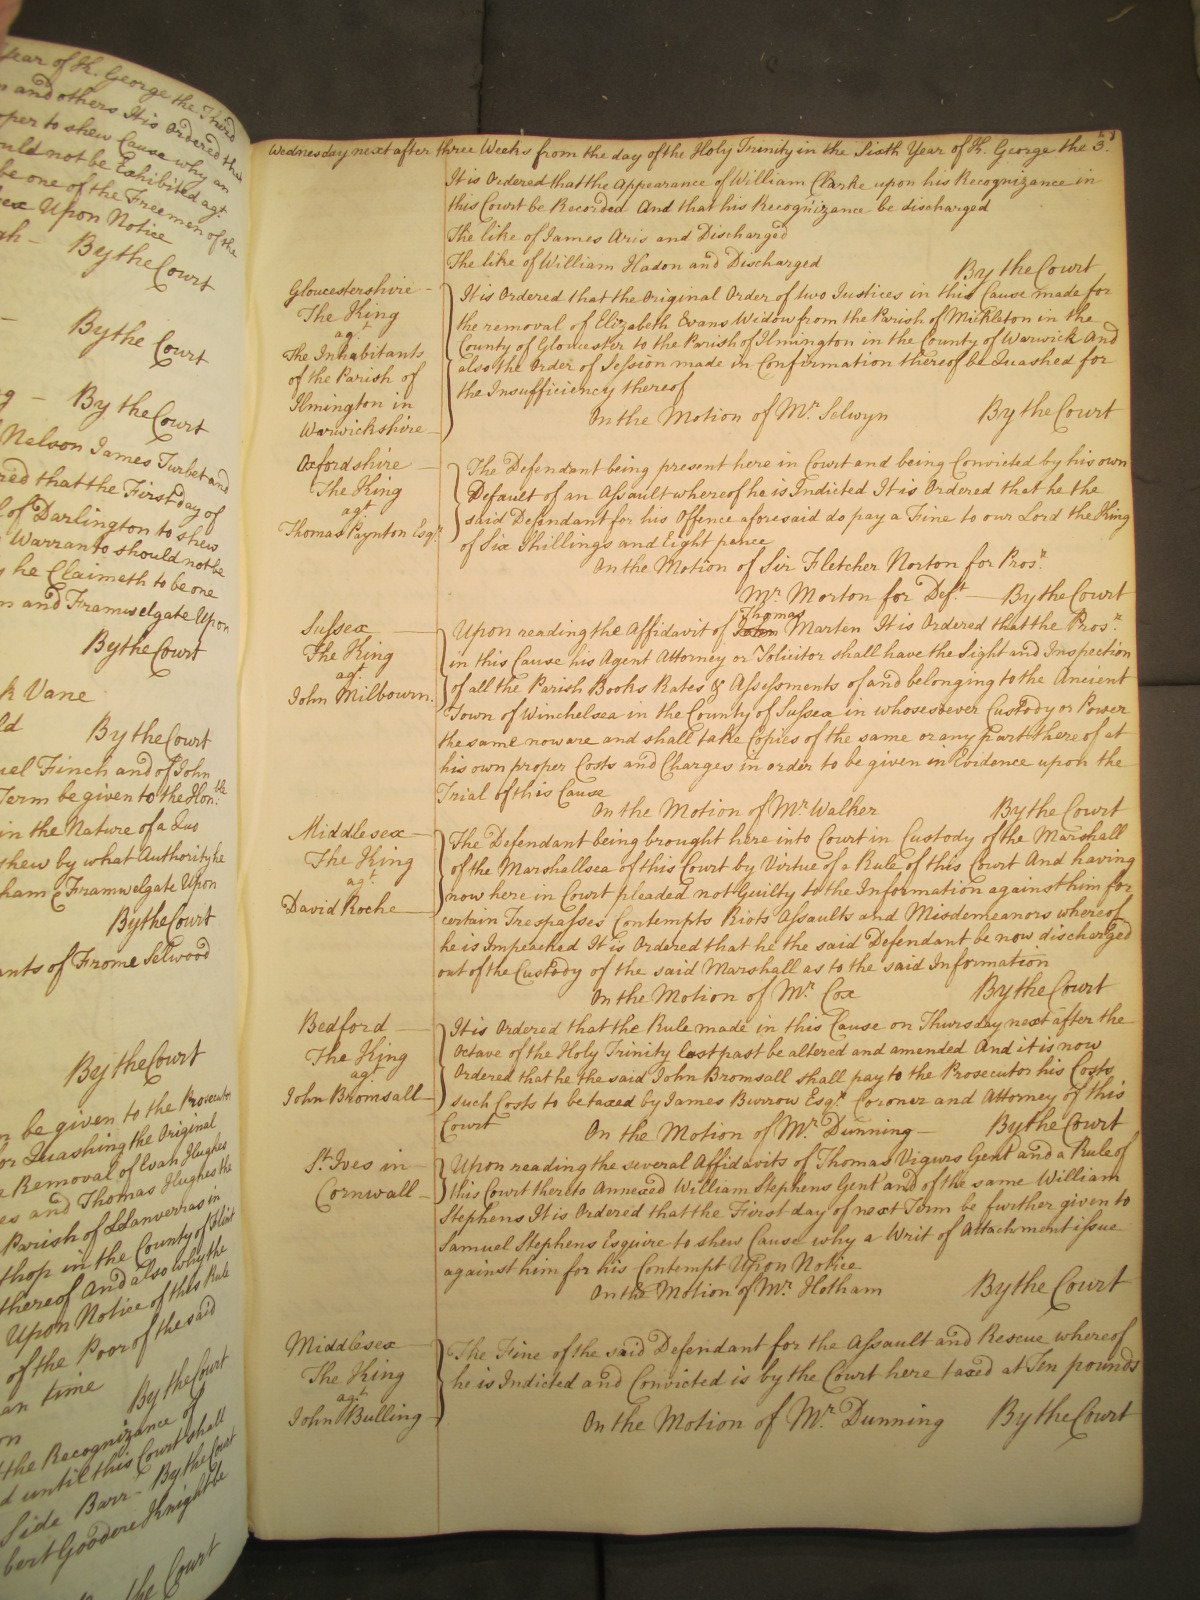 Year of K. George the Third
and others It is Ordered that
to shew Cause why an
not be Exhibited agt.
be one of the Freemen of the
Upon Notice
By the Court
By the Court
By the Court
Nelson James Turbet and
that the First day of
of Darlington to shew
Warranto should not be
he Claimeth to be one
and Framwelgate Upon
By the Court
Vane
By the Court
Finch and of John
Term be given to the Hon:ble
in the Nature of a Quo
shew by what Authority he
& Framwelgate Upon
By the Court
of Frome Selwood
By the Court
be given to the Prosecutor
Quashing the Original
Removal of Evan Hughes
and Thomas Hughes the
Parish of Llanverras in
in the County of Flint
thereof And also why the
Upon Notice of this Rule
of the Poor of the said
time By the Court
the Recognizance of
until this Court shall
Side Barr - By the Court
Goodere Knight be
the Court
Wednesday next after three Weeks from the day of the Holy Trinity in the Sixth Year of K. George the 3.d
It is Ordered that the Appearance of William Clarke upon his Recognizance in
this Court be Recorded And that his Recognizance be discharged
The like of James Aris and Discharged
The like of William Hadon and Discharged By the Court
Gloucestershire -
The King
agt
The Inhabitants
of the Parish of
Ilmington in
Warwickshire
It is Ordered that the Original Order of two Justices in this Cause made for
the removal of Elizabeth Evans Widow from the Parish of Mickleton in the
County of Gloucester to the Parish of Ilmington in the County of Warwick And
also the Order of Session made in Confirmation thereof be Quashed for
the Insufficiency thereof
On the Motion of Mr. Selwyn By the Court
Oxfordshire
The King
agt
Thomas Paynton Esqr.
The Defendant being present here in Court and being Convicted by his own
Default of an Assault whereof he is Indicted It is Ordered that he the
said Defendant for his Offence aforesaid do pay a Fine to our Lord the King
of Six Shillings and Eight pence
On the Motion of Sir Fletcher Norton for Pros.r
Mr. Morton for Def.t — By the Court
Sussex
The King
agt.
John Milbourn.
Thomas
Upon reading the Affidavit of John Marten It is Ordered that the Pros.r
in this Cause his Agent Attorney or Solicitor shall have the Sight and Inspection
of all the Parish Books Rates & Assessments of and belonging to the Ancient
Town of Winchelsea in the County of Sussex in whosesoever Custody or Power
the same now are and shall take Copies of the same or any part thereof at
his own proper Costs and Charges in order to be given in Evidence upon the
Trial of this Cause
On the Motion of Mr. Walker By the Court
Middlesex
The King
agt.
David Roche
The Defendant being brought here into Court in Custody of the Marshall
of the Marshallsea of this Court by Virtue of a Rule of this Court And having
now here in Court pleaded not Guilty to the Information against him for
certain Trespasses Contempts Riots Assaults and Misdemeanors whereof
he is Impeached It is Ordered that he the said Defendant be now discharged
out of the Custody of the said Marshall as to the said Information
On the Motion of Mr. Cox By the Court
Bedford
The King
agt
John Bromsall
It is Ordered that the Rule made in this Cause on Thursday next after the
Octave of the Holy Trinity last past be altered and amended And it is now
Ordered that he the said John Bromsall shall pay to the Prosecutor his Costs
such Costs to be taxed by James Burrow Esqr. Coroner and Attorney of this
Court On the Motion of Mr. Dunning — By the Court
St. Ives in
Cornwall
Upon reading the several Affidavits of Thomas Vigurs Gent and a Rule of
this Court thereto Annexed William Stephens Gent and of the same William
Stephens It is Ordered that the First day of next Term be further given to
Samuel Stephens Esquire to shew Cause why a Writ of Attachment issue
against him for his Contempt Upon Notice
On the Motion of Mr. Hotham By the Court
Middlesex
The King
agt
John Bulling
The Fine of the said Defendant for the Assault and Rescue whereof
he is Indicted and Convicted is by the Court here taxed at Ten pounds
On the Motion of Mr. Dunning By the Court